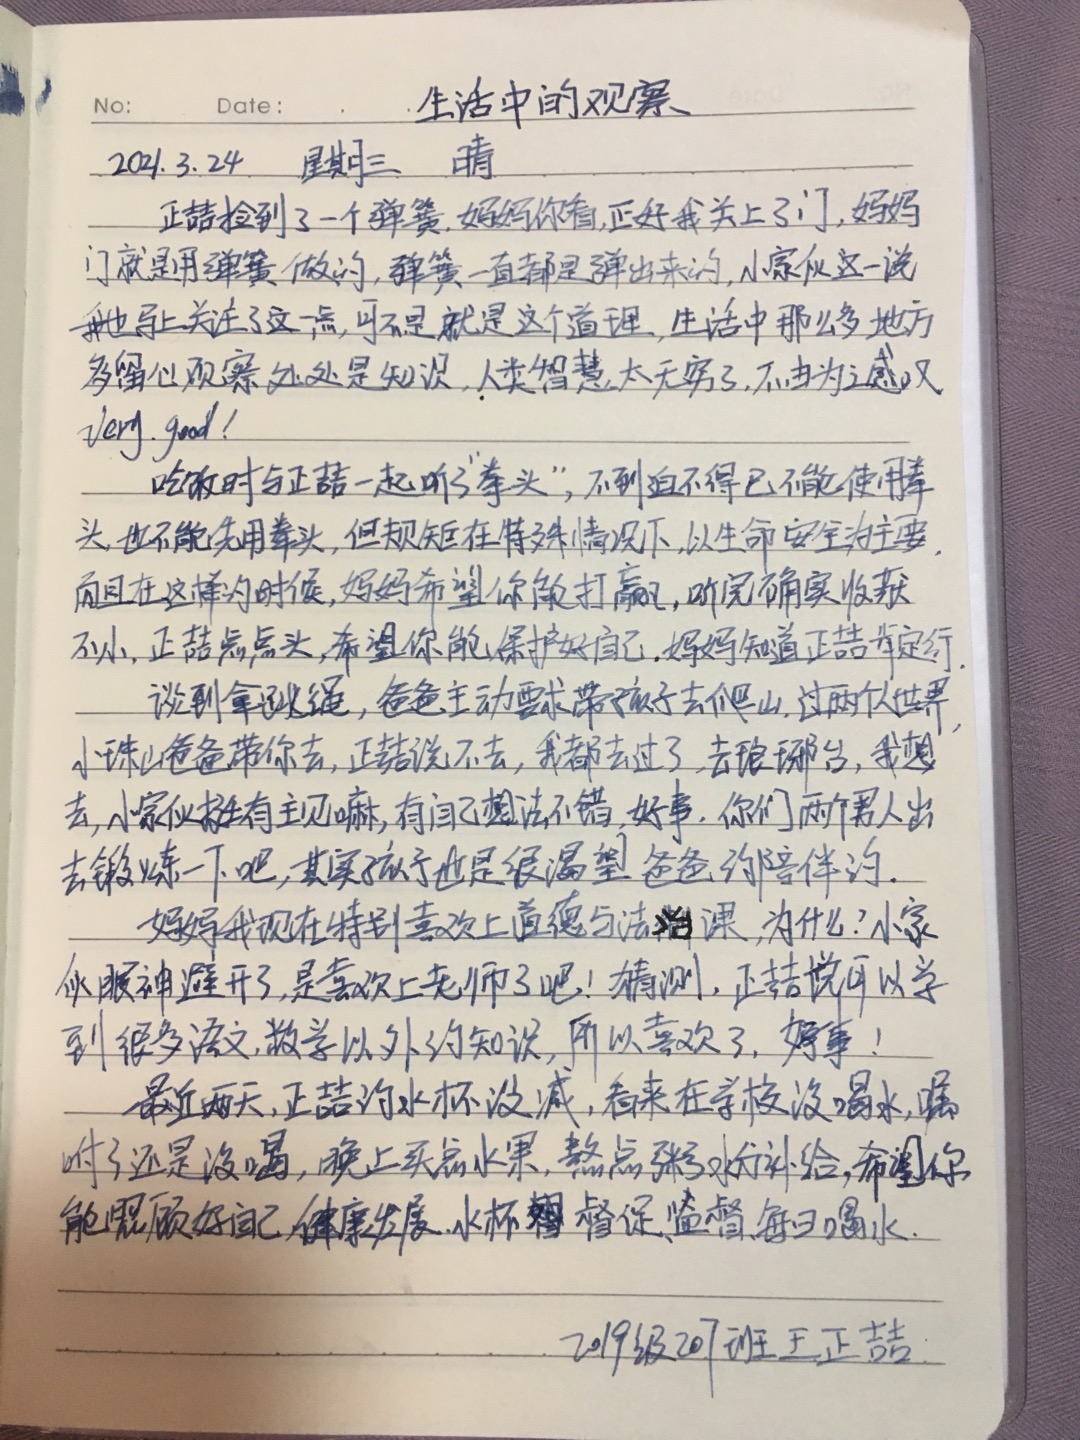 生活中的观察
No: Date:
2021.3.24 星期三 晴
正喆捡到了一个弹簧,妈妈你看,正好我关上了门,妈妈
门就是用弹簧做的,弹簧一直都是弹出来的,小家伙这一说
我也马上关注了这一点,可不是就是这个道理,生活中那么多地方
多留心观察处处是知识,人类智慧太无穷了,不由为之感叹
Very good!
吃饭时与正喆一起听了“拳头”,不到迫不得已不能使用拳
头,也不能先用拳头,但规矩在特殊情况下,以生命安全为主要,
而且在这样的时候,妈妈希望你能打赢,听完确实收获
不小,正喆点点头,希望你能保护好自己,妈妈知道正喆肯定行.
谈到拿跳绳,爸爸主动要求带孩子去爬山,过两个人世界,
小珠山爸爸带你去,正喆说不去,我都去过了,去琅琊台,我想
去,小家伙挺有主见嘛,有自己想法不错,好事.你们两个男人出
去锻炼一下吧,其实孩子也是很渴望爸爸的陪伴的.
妈妈我现在特别喜欢上道德与法治课,为什么?小家
伙眼神避开了,是喜欢上老师了吧!猜测,正喆说可以学
到很多语文,数学以外的知识,所以喜欢了,好事!
最近两天,正喆的水杯没减,看来在学校没喝水,嘱
咐了还是没喝,晚上买点水果,熬点粥水分补给,希望你
能照顾好自己,健康发展.水杯 督促,监督,每日喝水.
2019级207班王正喆.